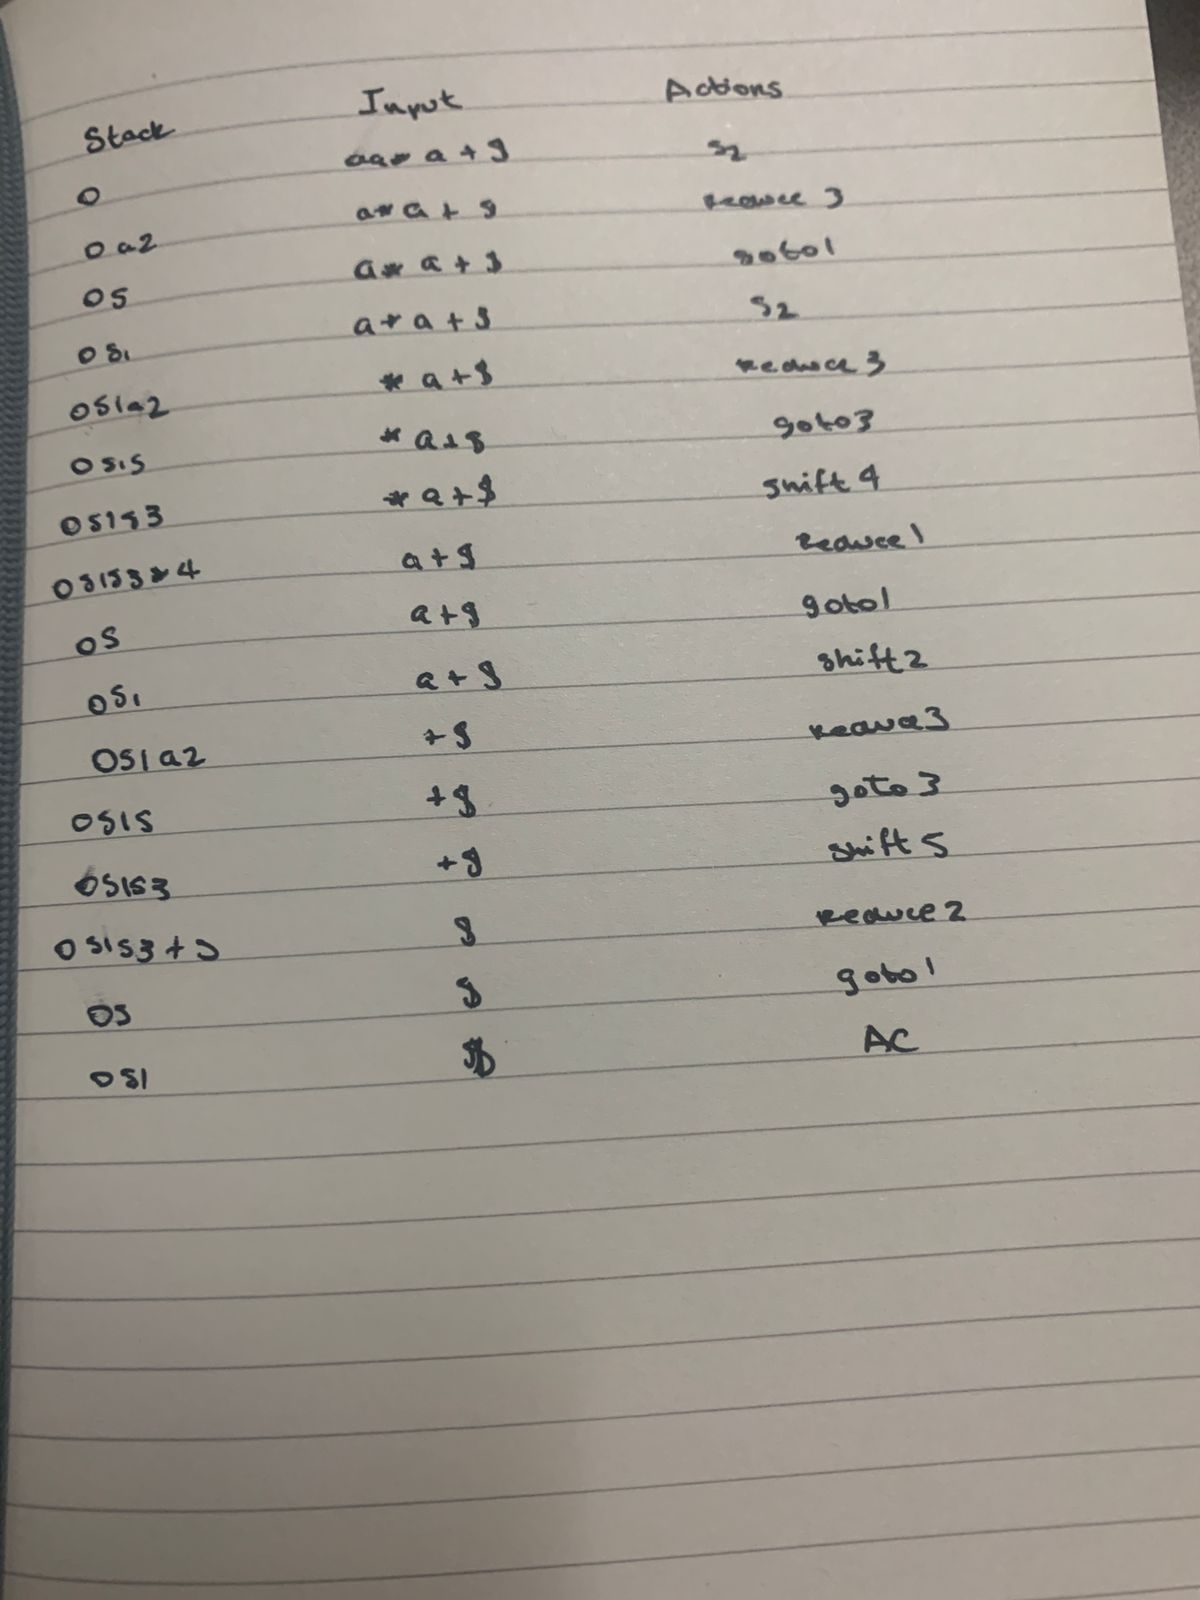 Stack Input Actions
0 aa* a + $ S2
0 a2 a* a + $ reduce 3
0S a* a + $ goto1
0S1 a* a + $ S2
0S1a2 * a + $ reduce 3
0S1S * a + $ goto3
0S1S3 * a + $ shift 4
0S1S3*4 a + $ reduce 1
0S a + $ goto1
0S1 a + $ shift 2
0S1 a2 + $ reduce 3
0S1S + $ goto 3
0S1S3 + $ shift 5
0S1S3 + 5 $ reduce 2
0S $ goto 1
0S1 $ AC